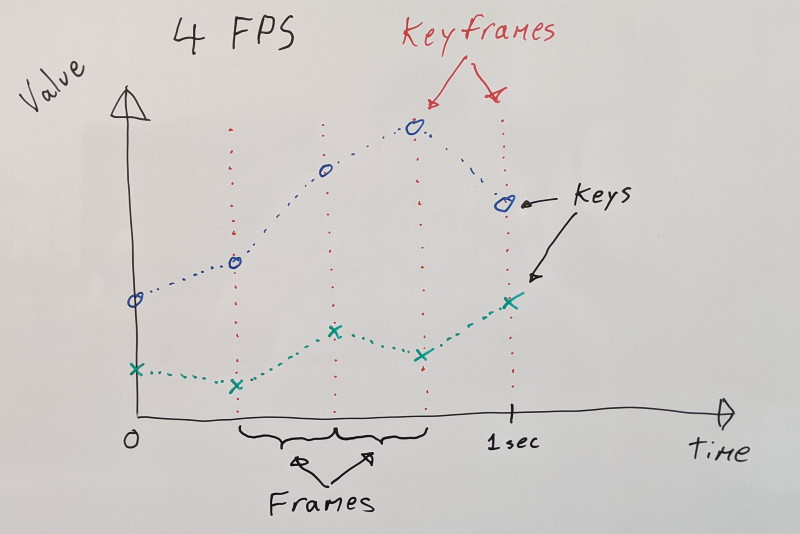 4 FPS
Keyframes
Value
Keys
0
1 sec
Time
Frames